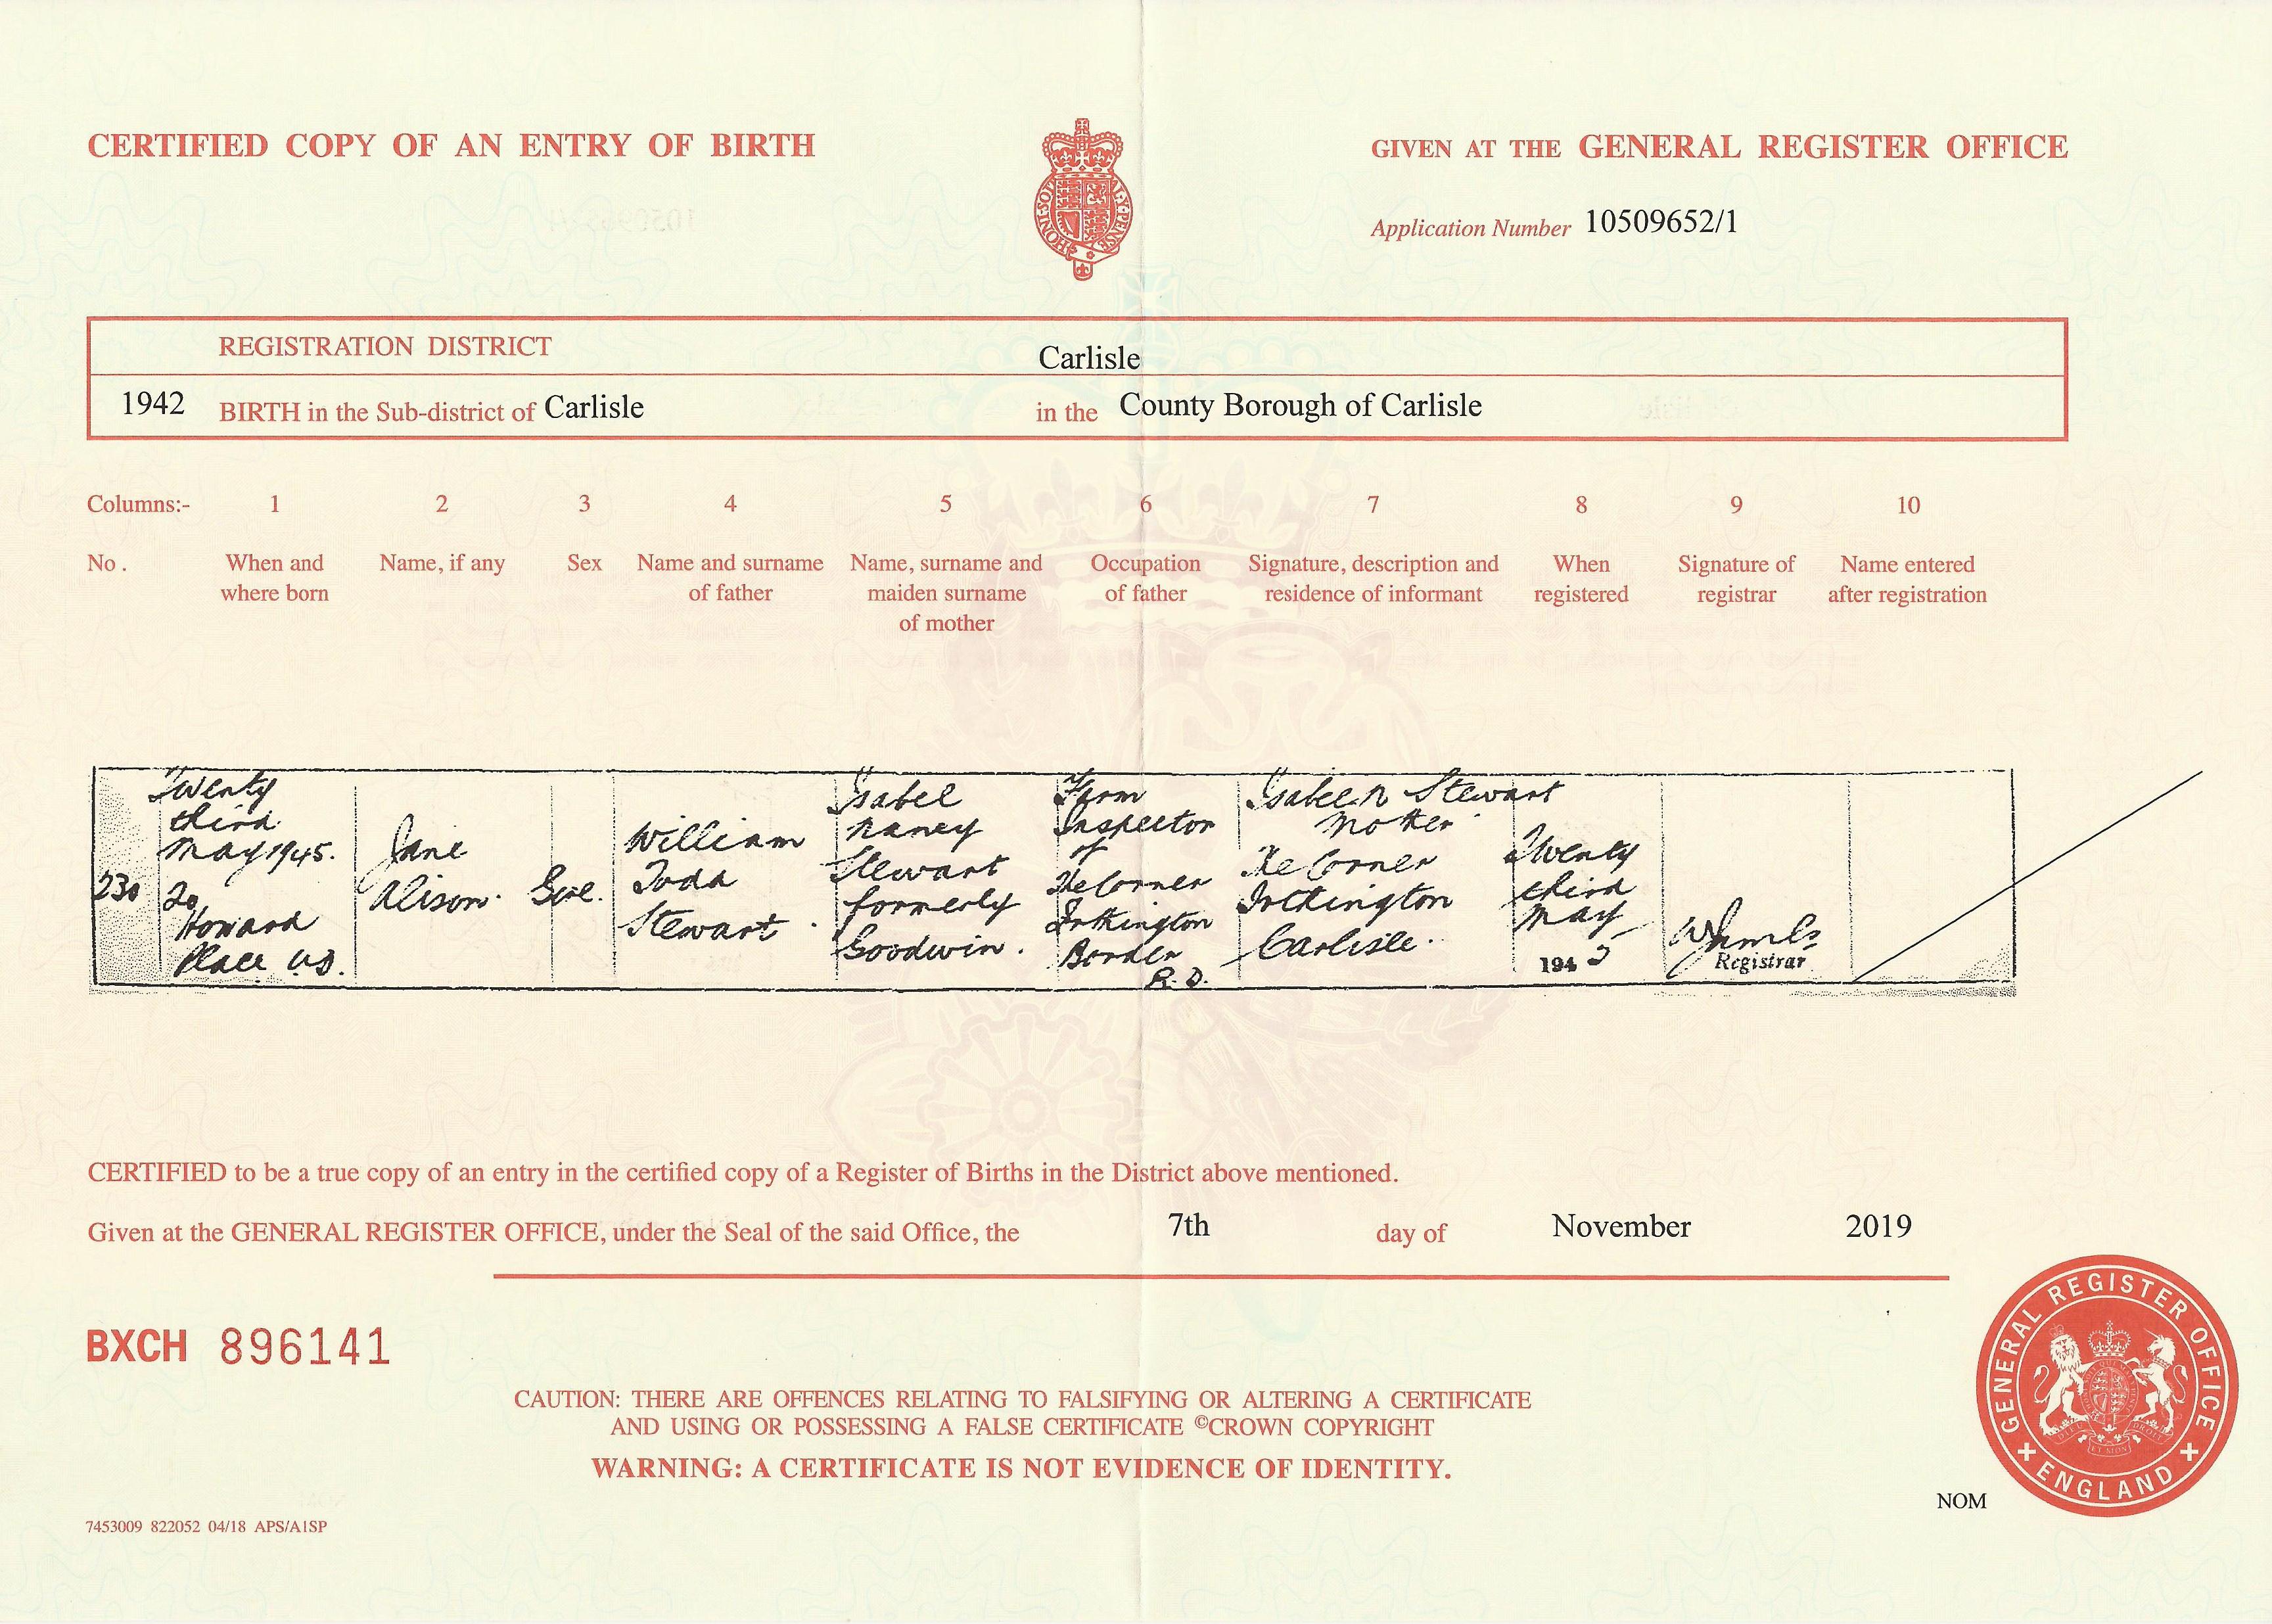 CERTIFIED COPY OF AN ENTRY OF BIRTH
GIVEN AT THE GENERAL REGISTER OFFICE
Application Number 10509652/1
REGISTRATION DISTRICT Carlisle
1942 BIRTH in the Sub-district of Carlisle in the County Borough of Carlisle
Columns:- 1 2 3 4 5 6 7 8 9 10
No. When and Name, if any Sex Name and surname Name, surname and Occupation Signature, description and When Signature of Name entered
where born of father maiden surname of father residence of informant registered registrar after registration
of mother
230
Twenty
third
May 1945.
20
Howard
Place U.D.
Jane
Alison.
Girl.
William
Todd
Stewart.
Isabel
Nancy
Stewart
formerly
Goodwin.
Farm
Inspector
of
The Corner
Irthington
Border
R.D.
Isabel N Stewart
Mother
The Corner
Irthington
Carlisle.
Twenty
third
May
1945
Registrar
CERTIFIED to be a true copy of an entry in the certified copy of a Register of Births in the District above mentioned.
Given at the GENERAL REGISTER OFFICE, under the Seal of the said Office, the 7th day of November 2019
BXCH 896141
CAUTION: THERE ARE OFFENCES RELATING TO FALSIFYING OR ALTERING A CERTIFICATE
AND USING OR POSSESSING A FALSE CERTIFICATE ©CROWN COPYRIGHT
WARNING: A CERTIFICATE IS NOT EVIDENCE OF IDENTITY.
GENERAL REGISTER OFFICE
ENGLAND
NOM
7453009 822052 04/18 APS/A1SP